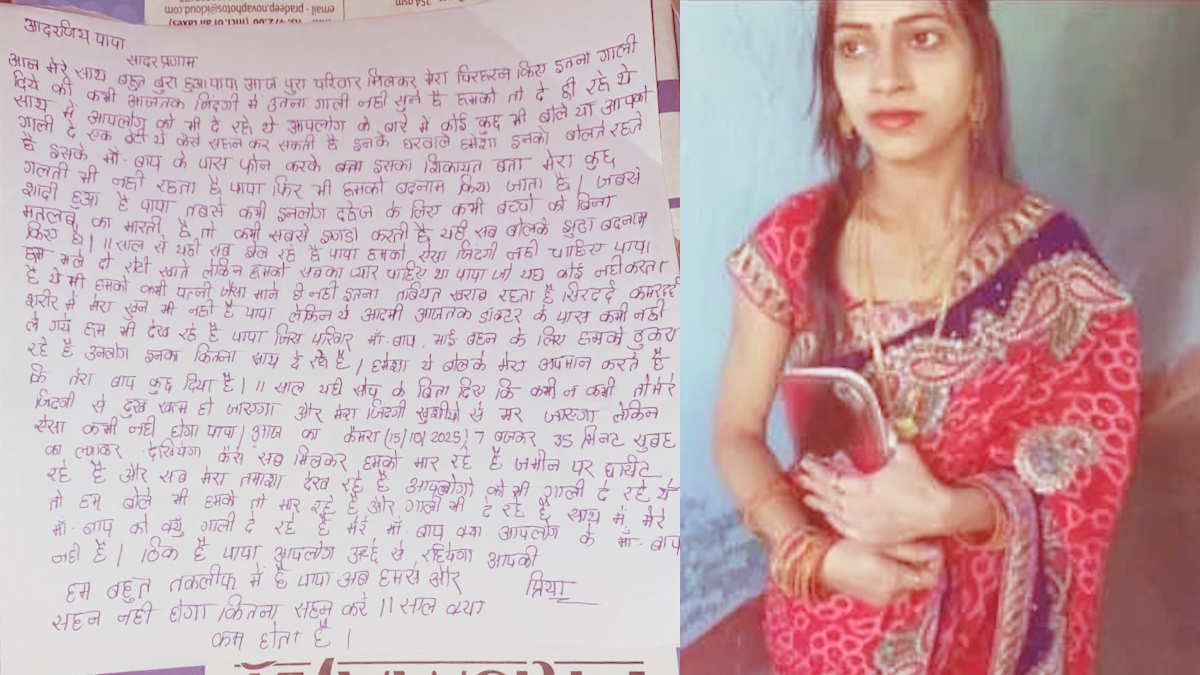 email - pradeep.novaphotos@icloud.com
आदरणिय पापा
सादर प्रणाम
आज मेरे साथ बहुत बुरा हुआ पापा आज पुरा परिवार मिलकर मेरा चिरहरन किए इतना गाली
दिये की कभी आजतक जिंदगी में इतना गाली नही सुने है हमको तो दे ही रहे थे
साथ में आपलोग को भी दे रहे थे आपलोग के बारे में कोई कुछ भी बोले या आपको
गाली दे एक बेटी ये कैसे सहन कर सकती है इनके घरवाले हमेशा इनको बोलते रहते
है इसके माँ-बाप के पास फोन करके बता इसका शिकायत बता मेरा कुछ
गलती भी नही रहता है पापा फिर भी हमको बदनाम किया जाता है। जबसे
शादी हुआ है पापा तबसे कभी इनलोग दहेज के लिए कभी बच्चो को बिना
मतलब का मारती है तो कभी सबसे झगडा करती है यही सब बोलके झुठा बदनाम
किए है। 11 साल से यही सब झेल रहे है पापा हमको ऐसा जिंदगी नही चाहिए पापा
हम भले दो रोटी खाते लेकिन हमको सबका प्यार चाहिए था पापा जो यहा कोई नही करता
है ये भी हमको कभी पत्नी जैसा माने ही नही इतना तबियत खराब रहता है सिरदर्द कमरदर्द
शरीर में मेरा खुन भी नही है पापा लेकिन ये आदमी आजतक डॉक्टर के पास कभी नही
ले गये हम भी देख रहे है पापा जिस परिवार माँ-बाप, भाई बहन के लिए हमको ठुकरा
रहे है उनलोग इनका कितना साथ दे रहे है। हमेशा ये बोलके मेरा अपमान करते है
कि तेरा बाप कुछ दिया है। 11 साल यही सोच के बिता दिए कि कभी न कभी तो मेरे
जिंदगी से दुख खत्म हो जाएगा और मेरा जिंदगी खुशीयो से भर जाएगा लेकिन
ऐसा कभी नही होगा पापा। आज का कैमरा (15/10/2025) 7 बजकर 35 मिनट सुबह
का लगाकर देखियेगा कैसे सब मिलकर हमको मार रहे है जमीन पर घसीट
रहे है और सब मेरा तमाशा देख रहे है आपलोगो को भी गाली दे रहे थे
तो हम बोले भी हमको तो मार रहे है और गाली भी दे रहे है साथ में मेरे
माँ-बाप को क्यु गाली दे रहे है मेरे माँ बाप क्या आपलोग के माँ-बाप
नही है। ठिक है पापा आपलोग अच्छे से रहियेगा आपकी
हम बहुत तकलीफ में है पापा अब हमसे और प्रिया
सहन नही होगा कितना सहन करे 11 साल क्या
कम होता है।